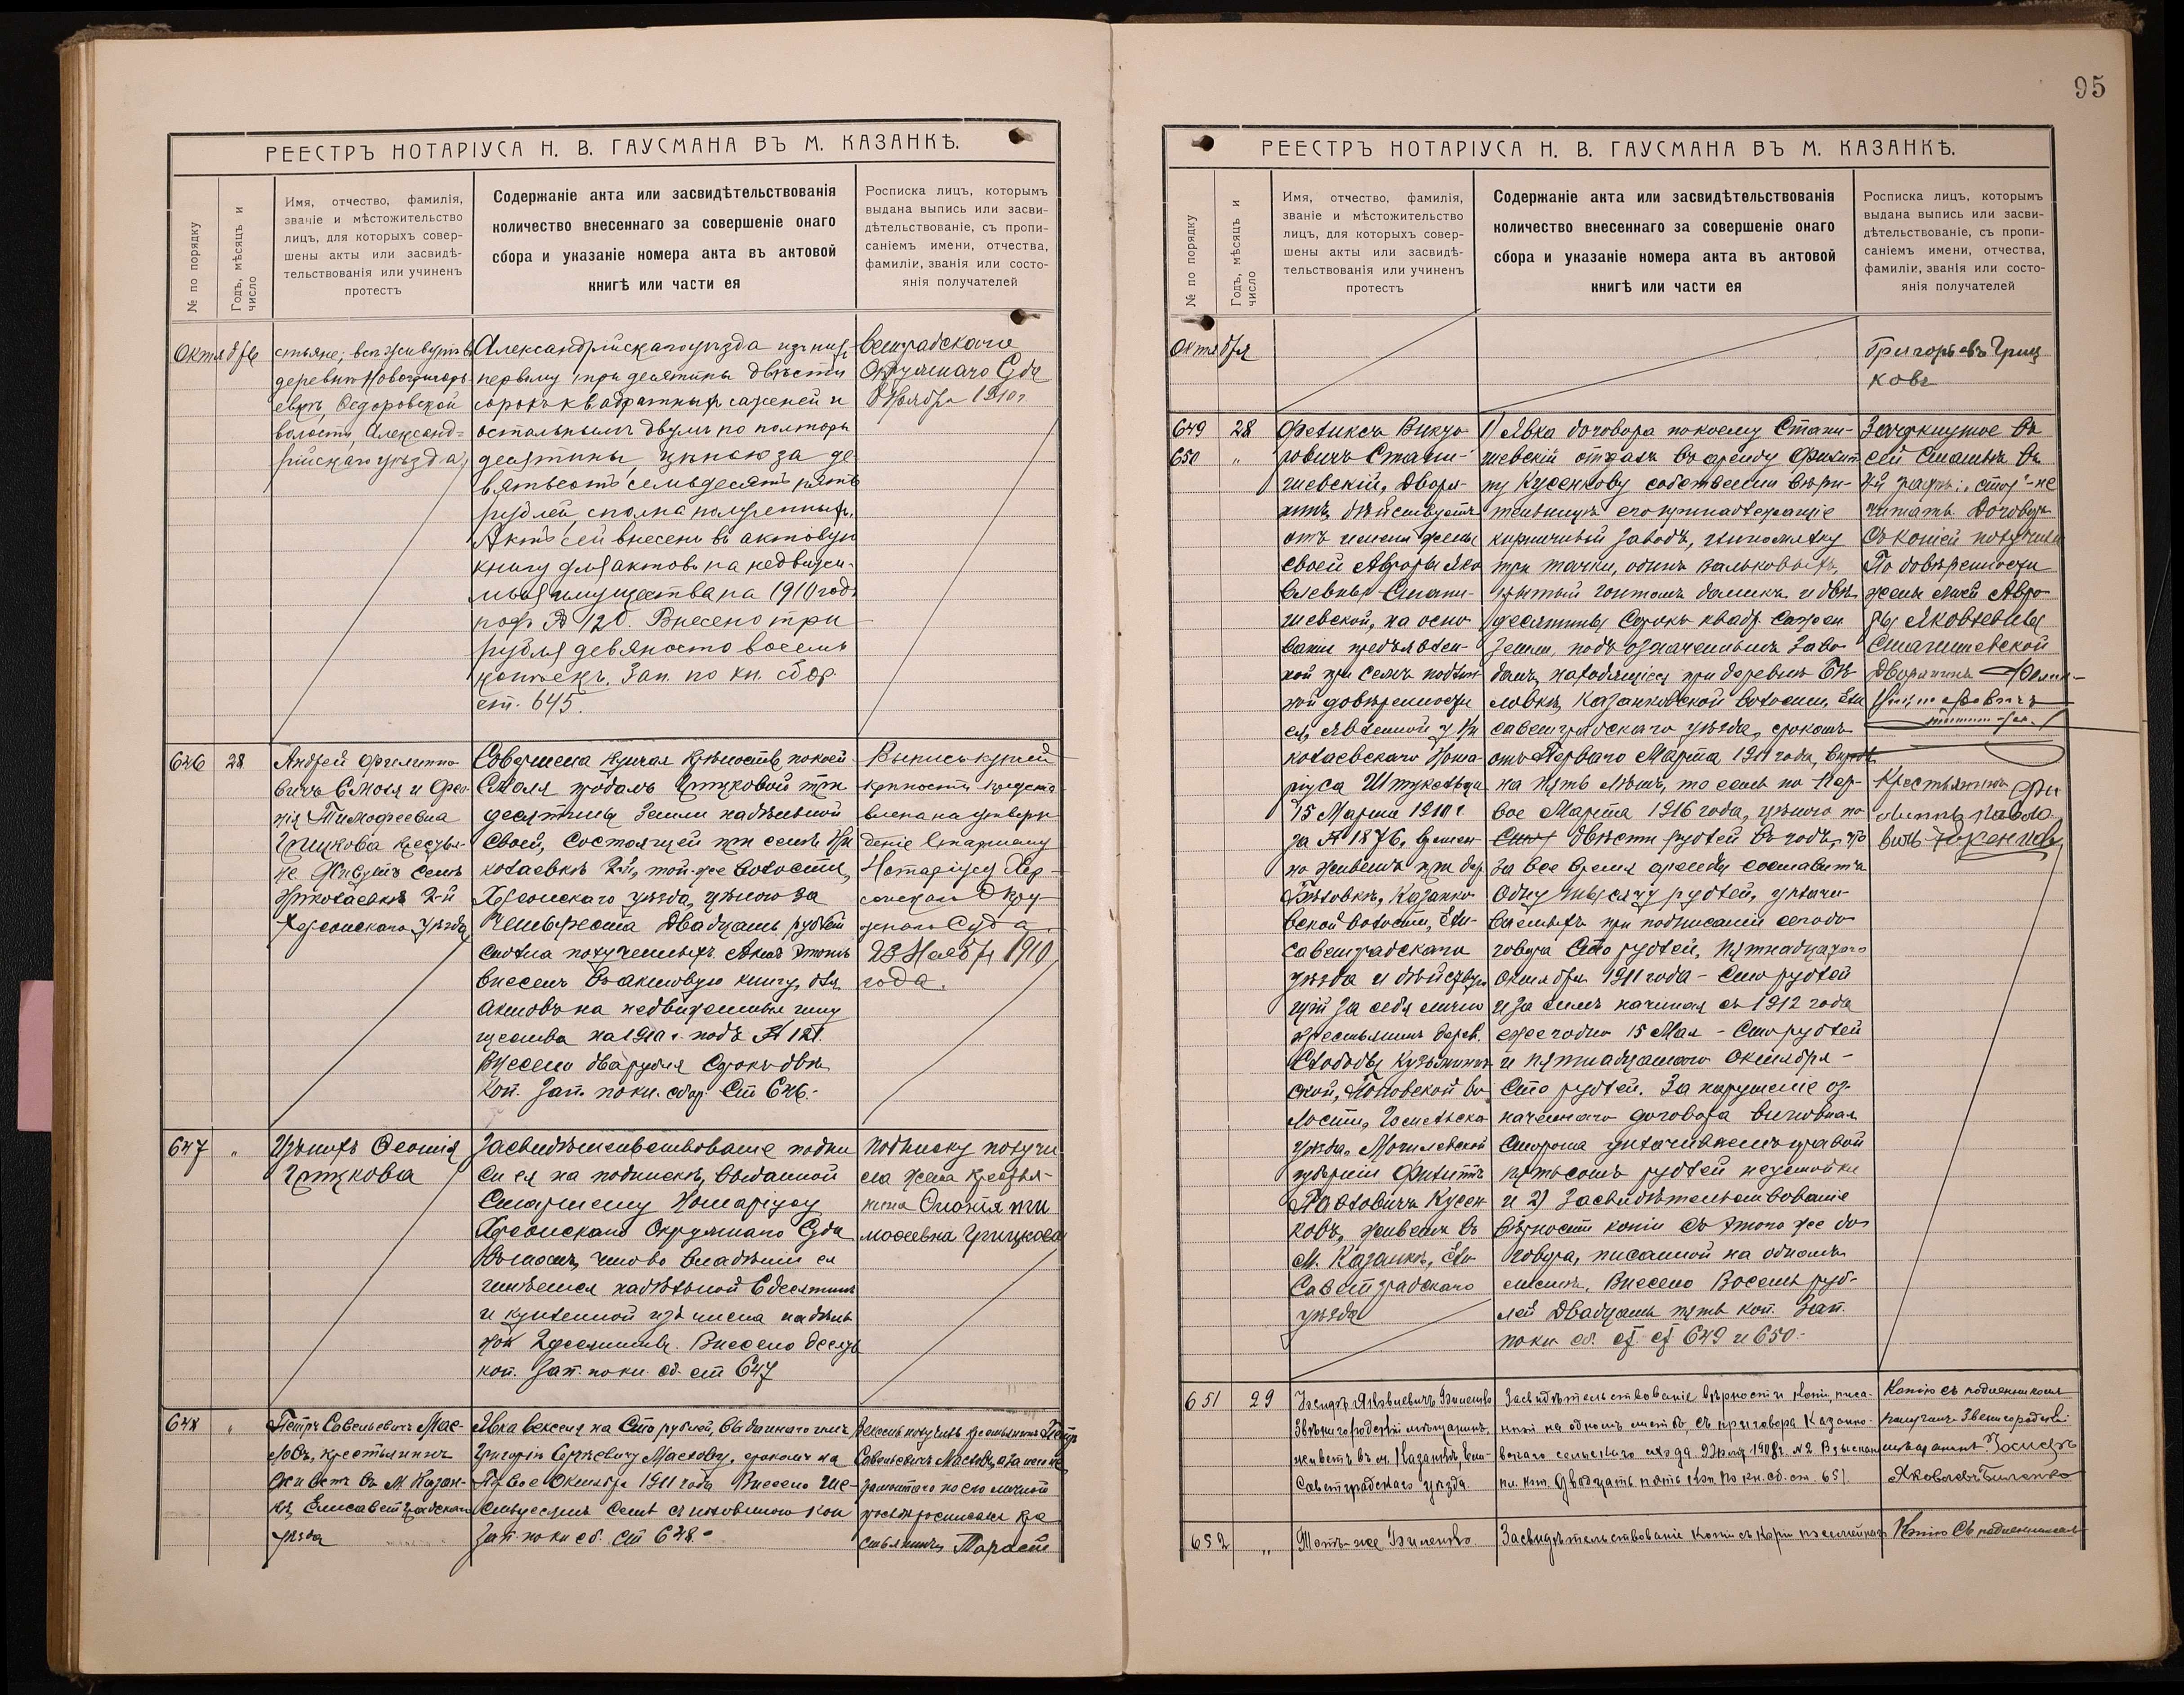 95
РЕЕСТРЪ НОТАРІУСА Н. В. ГАУСМАНА ВЪ М. КАЗАНКѢ.
№ по порядку
Годъ, мѣсяцъ и число
Имя, отчество, фамилія,
званіе и мѣстожительство
лицъ, для которыхъ совер-
шены акты или засвидѣ-
тельствованія или учиненъ
протестъ
Содержаніе акта или засвидѣтельствованія
количество внесеннаго за совершеніе онаго
сбора и указаніе номера акта въ актовой
книгѣ или части ея
Росписка лицъ, которымъ
выдана выпись или засви-
дѣтельствованіе, съ пропи-
саніемъ имени, отчества,
фамиліи, званія или состо-
янія получателей
Октября
стьяне; всѣ живутъ въ
деревнѣ Новогригорь-
евкѣ, Ѳедоровской
волости, Александ-
рійскаго уѣзда
Александрійскаго уѣзда изъ нихъ
первому три десятины двѣсти
сорокъ квадратныхъ саженей и
остальнымъ двумъ по полторы
десятины, цѣною за де-
вятьсотъ семьдесятъ пять
рублей, сполна полученныхъ.
Актъ сей внесенъ въ актовую
книгу для актовъ на недвижи-
мыя имущества на 1910 годъ
подъ № 120. Внесено три
рубля девяносто восемь
копѣекъ. Зап. по кн. сбор.
ст. 645.
Окружнаго Суда
8 Ноября 1910 г
646 28
Андрей Филиппо-
вичъ Смоля и Ѳео-
нія Тимофеевна
Грицкова крестья-
не. Живутъ селѣ
Николаевкѣ 2-й
Херсонскаго уѣзда
Совершена купчая крѣпость, по коей
Смоля продалъ Грицковой три
десятины земли надѣльной
своей, состоящей при селѣ Ни-
колаевкѣ 2-й, той-же волости,
Херсонскаго уѣзда, цѣною за
Четыреста Двадцать рублей
сполна полученныхъ. Актъ этотъ
внесенъ въ актовую книгу для
актовъ на недвижимыя иму-
щества на 1910 г. подъ № 121.
Внесено два рубля Сорокъ двѣ
коп. Зап. по кн. сбор. Ст 646.-
Выпись купчей
крѣпости предста-
влена на утверж-
деніе Старшему
Нотаріусу Хер-
сонскаго Окру-
жнаго Суда
23 Ноября 1910
года.
647 "
Грицкова
Засвидѣтельствованіе подпи-
си ея на подпискѣ, выданной
Старшему Нотаріусу
Херсонскаго Окружнаго Суда
въ томъ, что во владѣніи ея
имѣется надѣльной 6 десятинъ
и купленной изъ числа надѣль-
ной 2 десятины. Внесено десять
коп. Зап. по кн. сб. ст 647
Подписку получи-
ла жена крестья-
нина
Грицкова
648 "
Петръ Савельевичъ Мас-
ловъ, крестьянинъ
живетъ въ М. Казан-
кѣ, Елисаветградскаго
уѣзда
Явка векселя на Сто рублей, выданнаго имъ
Григорію Сергѣевичу Маслову, срокомъ на
Первое Октября 1911 года. Внесено Ше-
стьдесятъ Семь съ половиною коп
Зап. по кн сб. Ст 648.-
Вексель получилъ крестьянинъ Петръ
Савельевичъ Масловъ, а за него не-
грамотнаго по его личной
просьбѣ росписался кре-
стьянинъ
РЕЕСТРЪ НОТАРІУСА Н. В. ГАУСМАНА ВЪ М. КАЗАНКѢ.
№ по порядку
Годъ, мѣсяцъ и число
Имя, отчество, фамилія,
званіе и мѣстожительство
лицъ, для которыхъ совер-
шены акты или засвидѣ-
тельствованія или учиненъ
протестъ
Содержаніе акта или засвидѣтельствованія
количество внесеннаго за совершеніе онаго
сбора и указаніе номера акта въ актовой
книгѣ или части ея
Росписка лицъ, которымъ
выдана выпись или засви-
дѣтельствованіе, съ пропи-
саніемъ имени, отчества,
фамиліи, званія или состо-
янія получателей
Октября
Григорьевъ Гриц
ковъ
649 28
650 "
Феликсъ Викто-
ровичъ Стани-
шевскій, Дворя-
нинъ, дѣйствуетъ
отъ имени жены
своей Авроры Яко-
влевны Стани-
шевской, на осно-
ваніи предъявлен-
ной при семъ подлин-
ной довѣренности
ея, явленной у Ни-
колаевскаго Нота-
ріуса
15 Марта 1910 г.
за № 1876, времен-
но живетъ при дер.
Бѣловкѣ, Казанко-
вской волости, Ели-
саветградскаго
уѣзда и дѣйствую-
щій за себя лично
крестьянинъ дерев.
Слободы
ской, Поповской во-
лости, Гомельска
уѣзда, Могилевской
губерніи Филиппъ
Павловичъ Кусен-
ковъ, живетъ въ
М. Казанкѣ, Ели-
саветградскаго
уѣзда
1) Явка договора по коему Стани-
шевскій отдалъ въ аренду Филип-
пу Кусенкову собственный вѣри-
тельницы его принадлежащіе
кирпичный заводъ, глиномялку
три тачки, одинъ
крытый гонтомъ домикъ и двѣ
десятины Сорокъ квадр. сажен
земли, подъ означеннымъ заво-
домъ, находящіеся при деревнѣ Бѣ-
ловкѣ, Казанковской волости, Ели-
саветградскаго уѣзда, срокомъ
отъ Перваго Марта 1911 года, впредь
на пять лѣтъ, то есть по Пер-
вое Марта 1916 года, цѣною по
Двѣсти рублей въ годъ, что
за все время аренды составитъ
Одну тысячу рублей, уплачи-
ваемыхъ при подписаніи сего до-
говора Сто рублей, Пятнадцатаго
Октября 1911 года - Сто рублей
и за симъ начиная съ 1912 года
ежегодно 15 Мая - Сто рублей
и пятнадцатаго Октября -
Сто рублей. За нарушеніе оз-
наченнаго договора виновная
Сторона уплачиваетъ правой
пятьсотъ рублей неустойки
и 2) Засвидѣтельствованіе
вѣрности копіи съ этого же до-
говора, писанной на одномъ
листѣ. Внесено Восемь руб-
лей Двадцать пять коп. Зап.
по кн сб. ст. ст 649 и 650.-
Зачеркнутое въ
сей статьѣ въ
4-й графѣ: - не
читать. Договоръ
съ копіей получилъ
По довѣренности
жены моей Авро-
ры Яковлевны
Станишевской
Дворянинъ
Крестьянинъ Фи-
липпъ Павло-
вичъ Кусенковъ
651 29
Звѣнигородскій мѣщанинъ,
живетъ въ м. Казанкѣ Ели-
саветградскаго уѣзда.
Засвидѣтельствованіе вѣрности копіи, писа-
нной на одномъ листѣ, съ приговора Казанко-
вскаго сельскаго схода
Двадцать пять коп. По кн. сб. ст. 651.
Копію съ подлинникомъ
получилъ Звенигородскій
мѣщанинъ
Яковлевъ Биленко
652 "
Тотъ-же Биленко.
Засвидѣтельствованіе копіи съ
Копію съ подлинникомъ